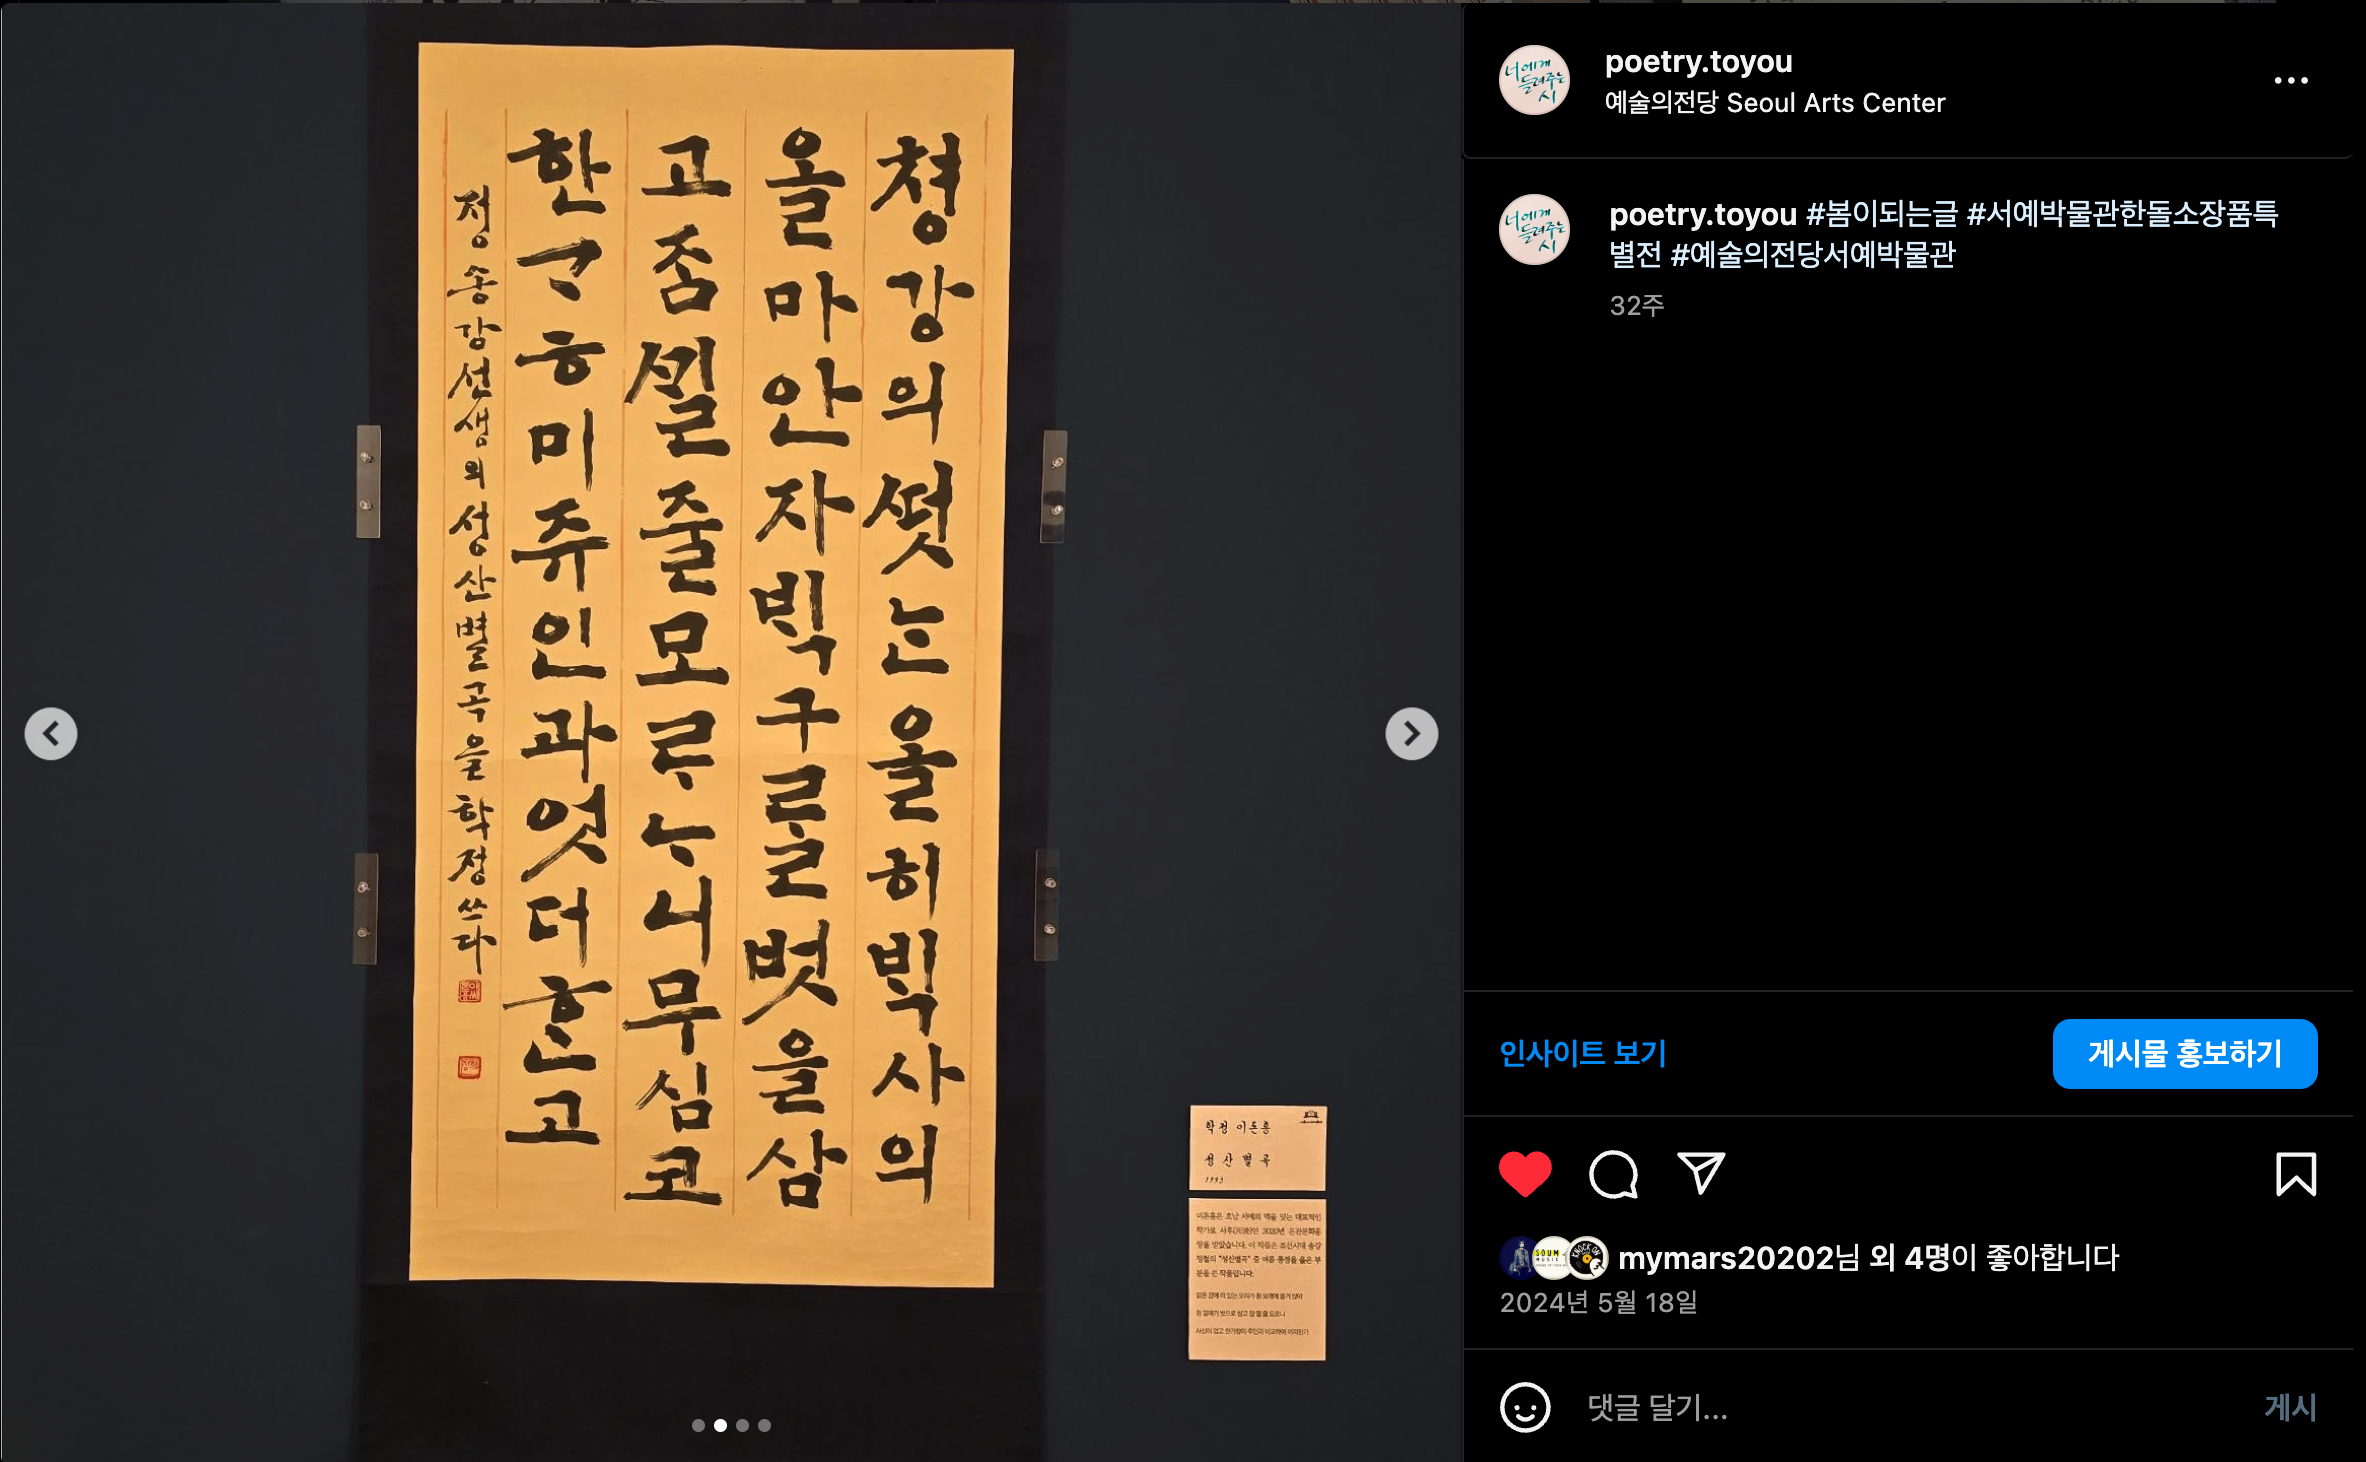 청강의 ᄯᅥᆺᄂᆞᆫ 올히 ᄇᆡᆨ사의
올마 안자 ᄇᆡᆨ구ᄅᆞᆯ 벗을 삼
고 ᄌᆞᆷ ᄭᆡᆯ 줄 모ᄅᆞᄂᆞ니 무심코
한가ᄒᆞ미 쥬인과 엇더ᄒᆞᆫ고
정송강선생의 성산별곡을 학정 쓰다
학정 이돈흥
성산별곡
1993
poetry.toyou
예술의전당 Seoul Arts Center
poetry.toyou #봄이되는글 #서예박물관한돌소장품특
별전 #예술의전당서예박물관
32주
인사이트 보기
게시물 홍보하기
mymars20202님 외 4명이 좋아합니다
2024년 5월 18일
댓글 달기...
게시